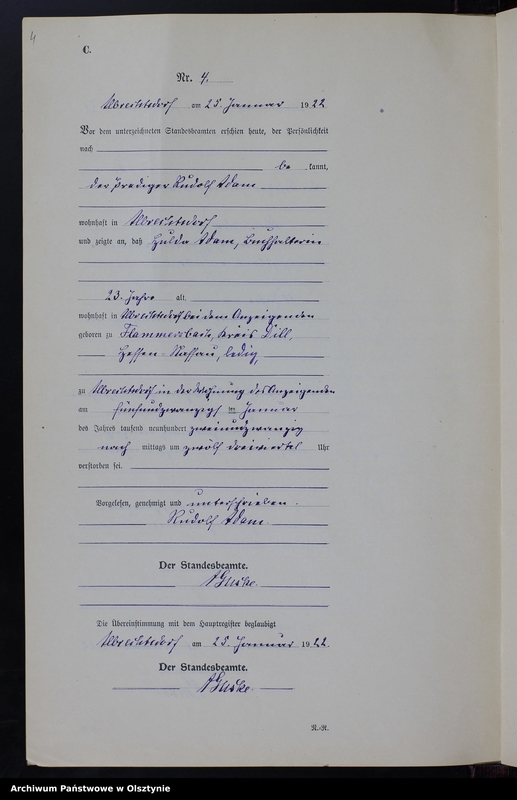 4
C.
Nr. 4.
Albrechtsdorf am 25. Januar 1922
Vor dem unterzeichneten Standesbeamten erschien heute, der Persönlichkeit
nach
be kannt,
der Prediger Rudolf Adam
wohnhaft in Albrechtsdorf
und zeigte an, daß Hulda Adam, Buchhalterin
23 Jahre alt,
wohnhaft in Albrechtsdorf bei dem Anzeigenden
geboren zu Flammersbach, Kreis Dill,
Hessen-Nassau, ledig,
zu Albrechtsdorf in der Wohnung des Anzeigenden
am fünfundzwanzigsten Januar
des Jahres tausend neunhundert zweiundzwanzig
nach mittags um zwölf dreiviertel Uhr
verstorben sei.
Vorgelesen, genehmigt und unterschrieben.
Rudolf Adam.
Der Standesbeamte.
Guske.
Die Übereinstimmung mit dem Hauptregister beglaubigt
Albrechtsdorf am 25. Januar 1922.
Der Standesbeamte.
Guske.
N.-R.
Archiwum Państwowe w Olsztynie